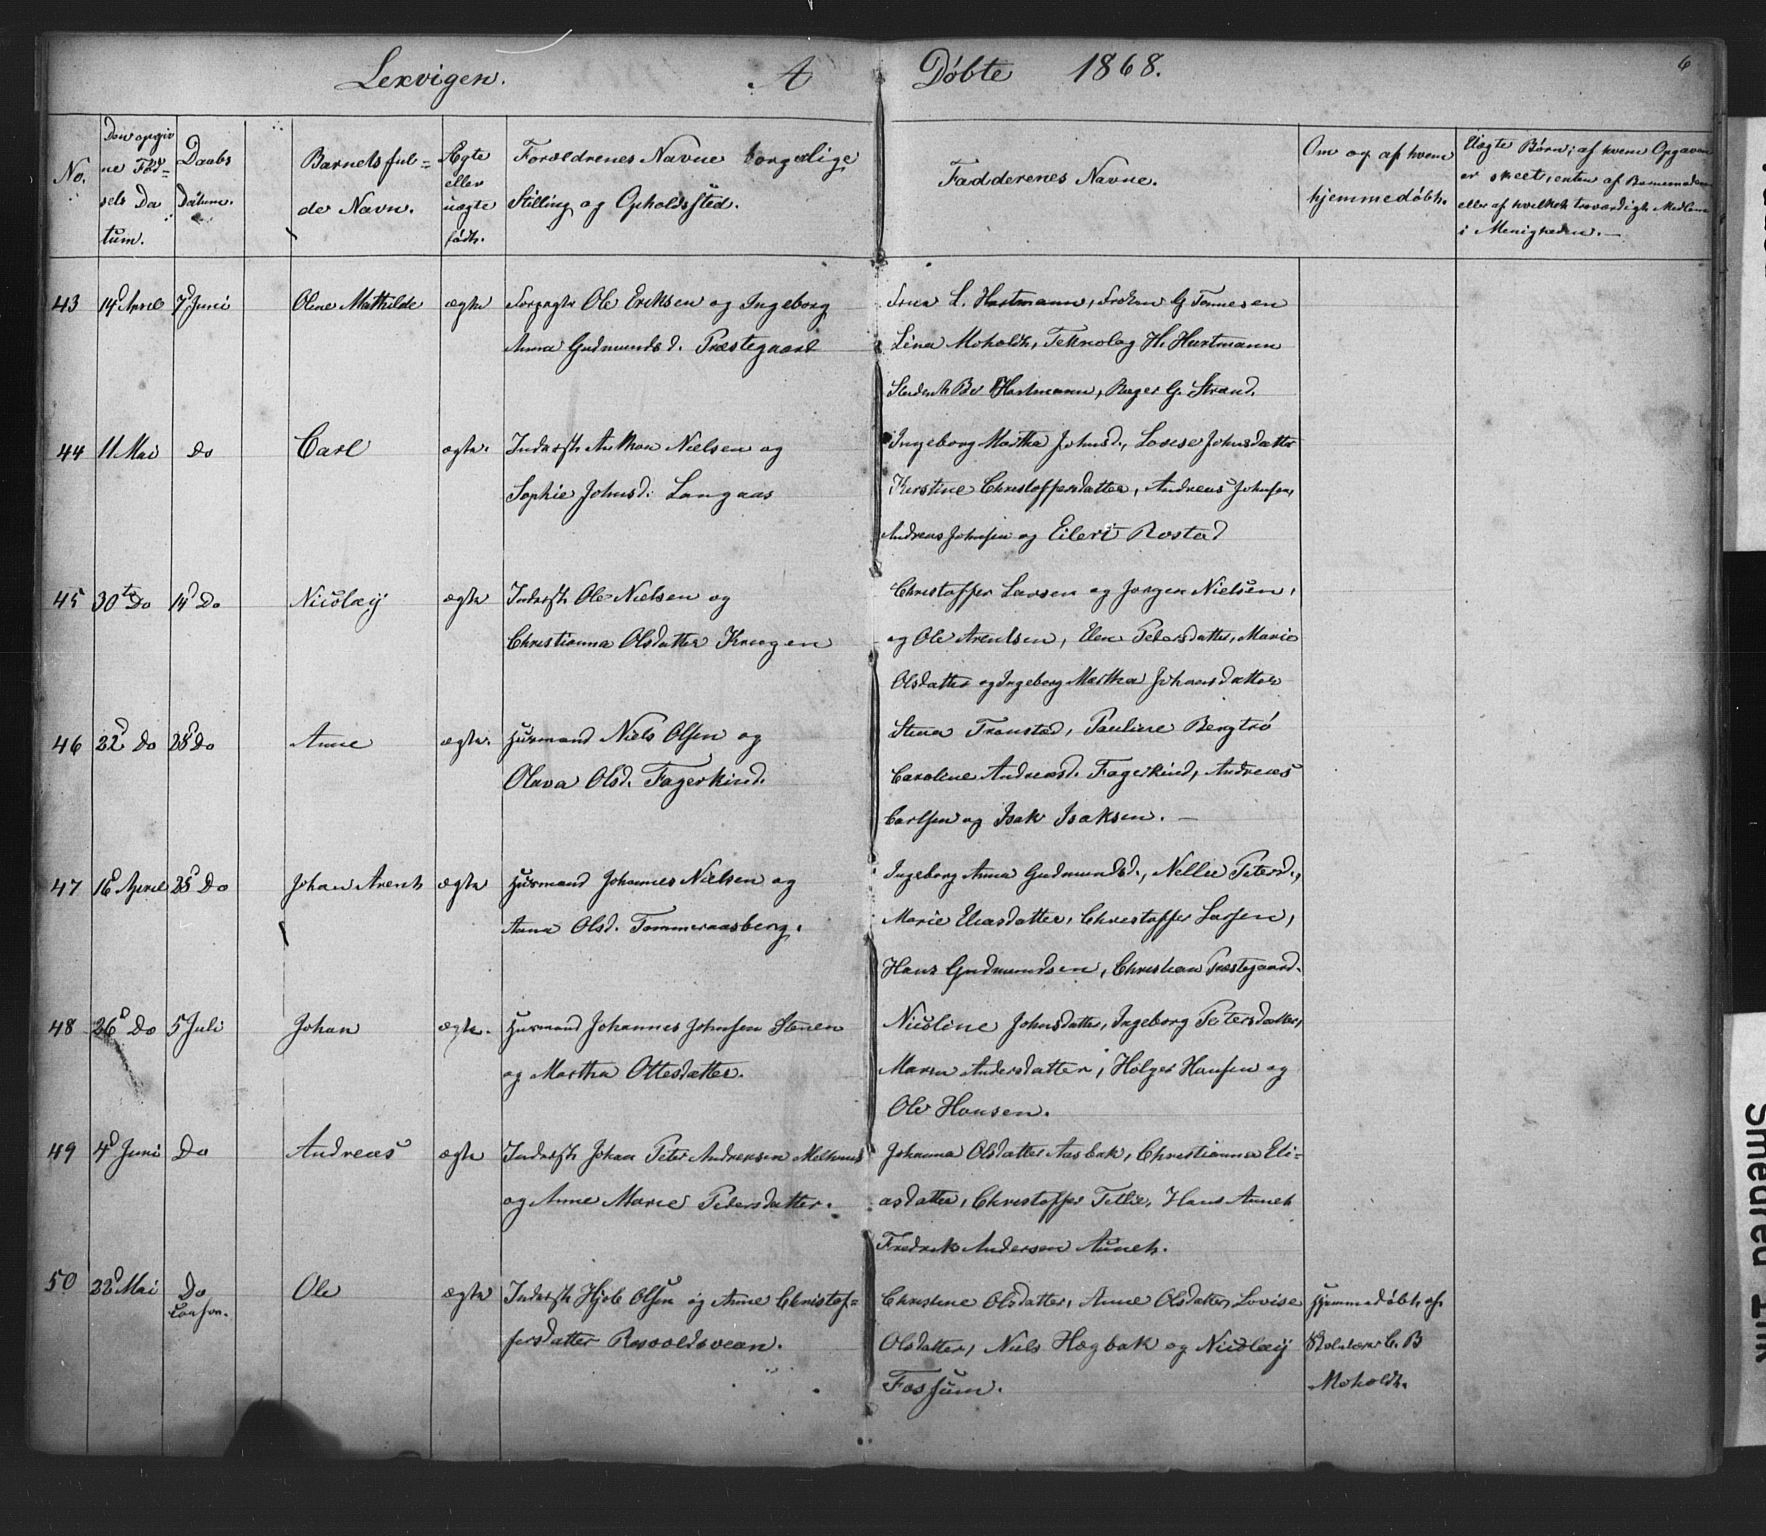 Lexvigen. A Døbte 1868. 6
No.
Den opgiv
ne Fød=
sels Da
tum.
Daabs
Datum.
Barnets ful=
de Navn.
Ægte
eller
uægte
født.
Forældrenes Navne borgerlige
Stilling og Opholdssted.
Fadderenes Navne.
Om og af hvem
hjemmedøbt.
Uægte Børn; af hvem Opgaven
er skeet, enten af Barnemoderen
eller af hvilket troværdigt Medlem
i Menigheden.
43 14d April 7d Juni Oline Mathilde ægte Forpagter Ole Eriksen og Ingeborg
Anna Gudmundsd. Præstegaard
Frue L. Hartmann, Frøken G. Tønnesen
Lina Moholdt, Teknolog H. Hartmann
Student Hartmann, G. Strand.
44 11 Mai Do Carl ægte. Inderst Anthon Nielsen og
Sophie Johnsd. Langaas
Ingeborg Martha Johnsd., Lovise Johnsdatter
Kirstine Christoffersdatter, Andreas Johnsen,
Andreas Johnsen og Eilert Rostad
45 30te Do 14d Do Nicolay ægte Inderst Ole Nielsen og
Christianna Olsdatter Krogen
Christoffer Larsen og Jørgen Nielsen,
og Ole Arentsen, Elen Petersdatter, Marie
Olsdatter og Ingeborg Martha Johansdatter
46 22d Do 28d Do Anne ægte. Husmand Niels Olsen og
Olava Olsd. Fagerkind.
Stina Transtad, Pauline Bergtrø
Caroline Andreasd. Fagerkind, Andreas
Carlsen og Isak Isaksen.
47 16d April 28d Do Johan Arent ægte Husmand Johannes Nielsen og
Anna Olsd. Tømmeraasberg.
Ingeborg Anna Gudmundsd., Nellie Petersd.,
Marie Eliasdatter, Christoffer Larsen,
Hans Gudmundsen, Christian Præstegaard.
48 26d Do 5 Juli Johan ægte. Husmand Johannes Johnsen Stenen
og Martha Ottesdatter.
Nicoline Johnsdatter, Ingeborg Petersdatter,
Maren Andersdatter, Holger Hansen og
Ole Hansen.
49 4d Juni Do Andreas ægte Inderst Johan Peter Andreasen Melhuus
og Anne Marie Pedersdatter.
Johanna Olsdatter Aasbak, Christianna Eli=
asdatter, Christoffer Tellie, Hans Aunet
Fredrik Andersen Aunet.
50 22d Mai Do
Confor.
Ole ægte Inderst Hjeb Olsen og Anne Christof=
fersdatter Rosvoldsvean.
Christine Olsdatter, Anne Olsdatter, Lovise
Olsdatter, Niels Hægbak og Nicolay
Fossum.
Hjemmedøbt af
Skolelærer C. B
Moholdt.
Smedred Ink